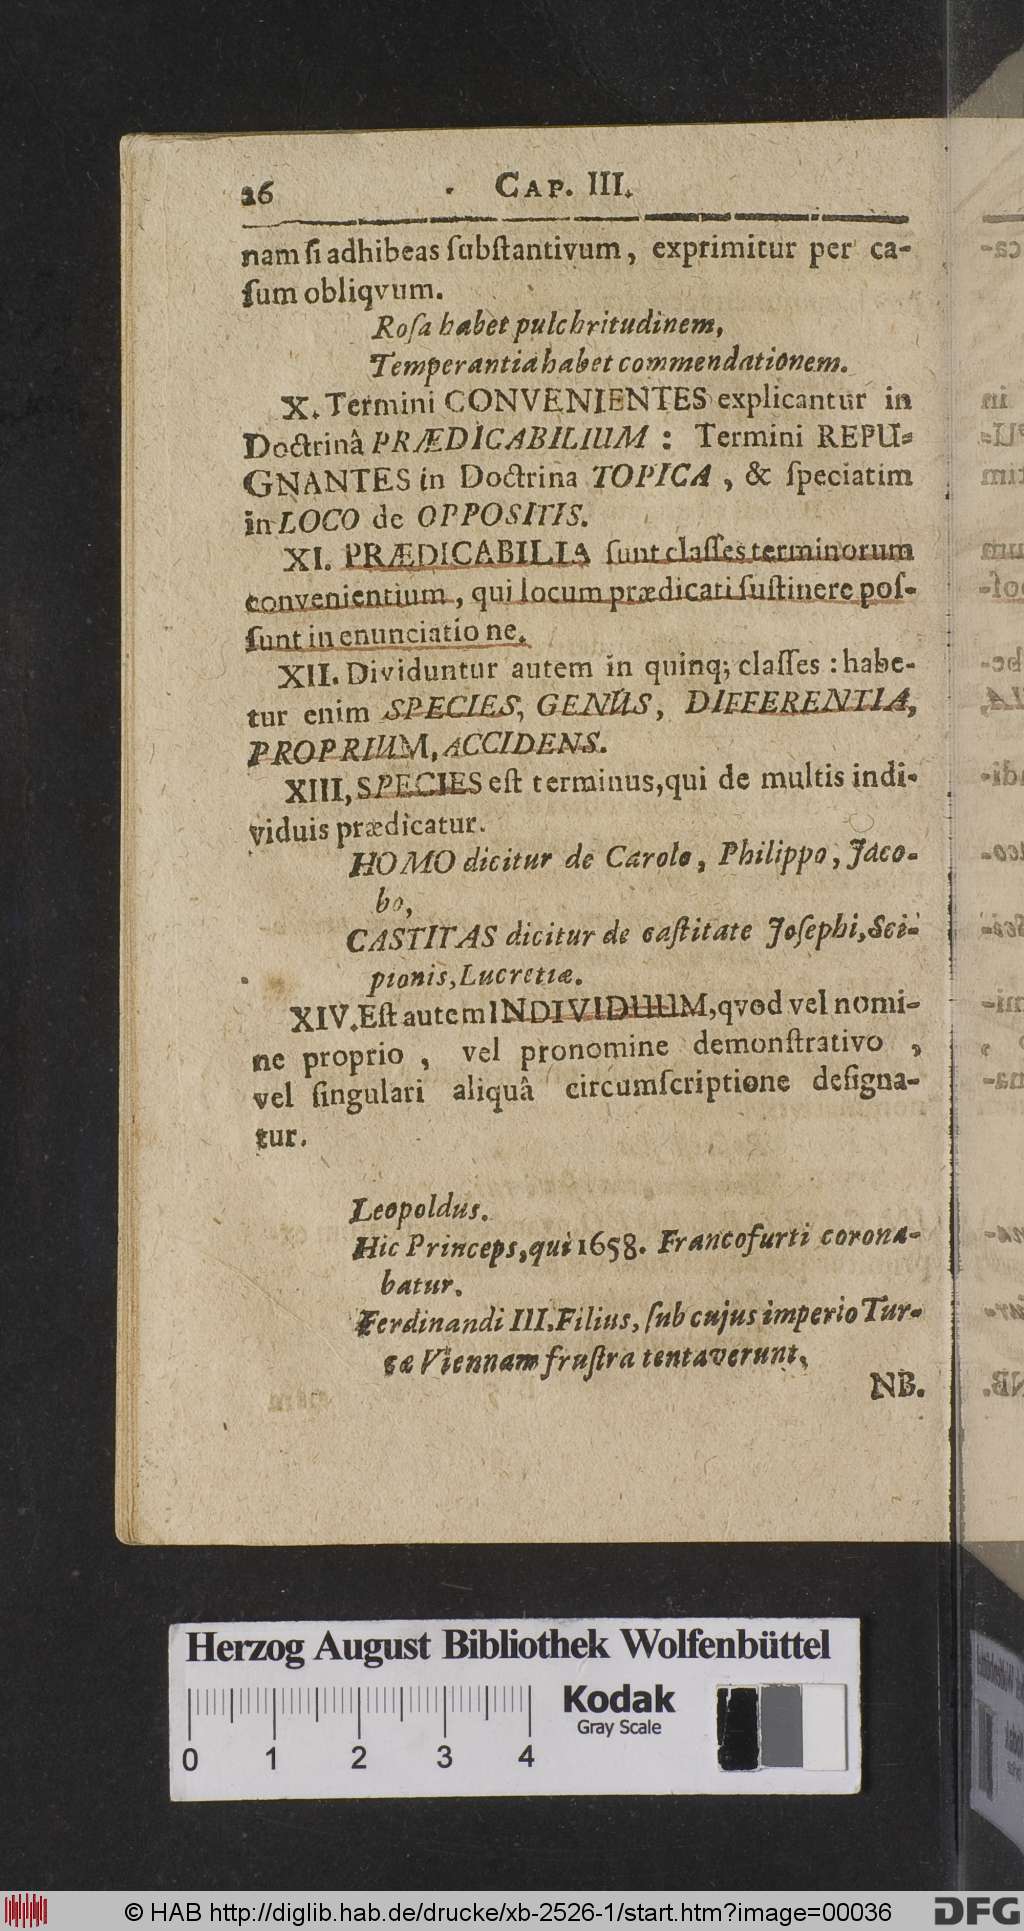 26 Cap. III.
nam ſi adhibeas ſubſtantivum, exprimitur per ca-
ſum obliqvum.
Roſa habet pulchritudinem,
Temperantia habet commendationem.
X. Termini CONVENIENTES explicantur in
Doctrinâ PRÆDICABILIUM : Termini REPU-
GNANTES in Doctrina TOPICA, & ſpeciatim
in LOCO de OPPOSITIS.
XI. PRÆDICABILIA ſunt claſſes terminorum
convenientium, qui locum prædicati ſuſtinere poſ-
ſunt in enunciatione.
XII. Dividuntur autem in quinq; claſſes : habe-
tur enim SPECIES, GENUS, DIFFERENTIA,
PROPRIUM, ACCIDENS.
XIII, SPECIES eſt terminus, qui de multis indi-
viduis prædicatur.
HOMO dicitur de Carolo, Philippo, Jaco-
bo,
CASTITAS dicitur de caſtitate Joſephi, Sci-
pionis, Lucretiæ.
XIV. Eſt autem INDIVIDUUM, qvod vel nomi-
ne proprio, vel pronomine demonſtrativo,
vel ſingulari aliquâ circumſcriptione deſigna-
tur.
Leopoldus.
Hic Princeps, qui 1658. Francofurti corona-
batur.
Ferdinandi III. Filius, ſub cujus imperio Tur-
cæ Viennam fruſtra tentaverunt,
NB.
Herzog August Bibliothek Wolfenbüttel
Kodak
Gray Scale
0 1 2 3 4
© HAB http://diglib.hab.de/drucke/xb-2526-1/start.htm?image=00036
DFG